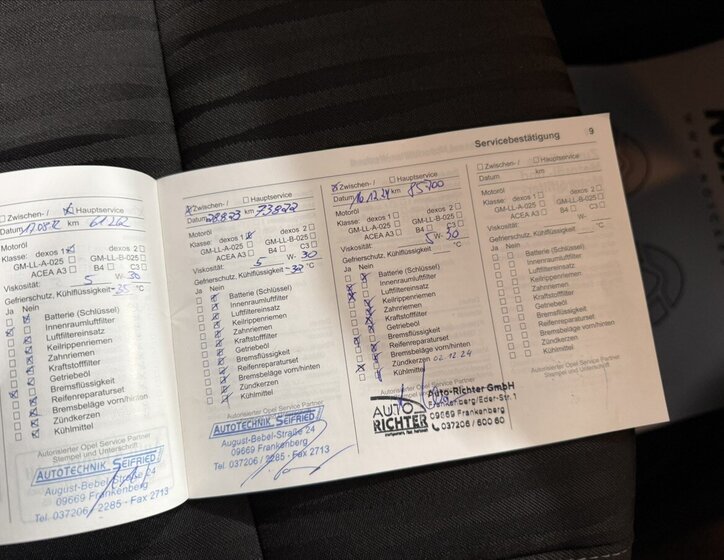 Servicebestätigung 9
Zwischen- / Hauptservice
Datum 17.08.22 km 61262
Motoröl
Klasse: dexos 1 dexos 2
GM-LL-A-025 GM-LL-B-025
ACEA A3 B4 C3
Viskosität: 5 W- 30
Gefrierschutz, Kühlflüssigkeit -35 °C
Ja Nein
Batterie (Schlüssel)
Innenraumluftfilter
Luftfiltereinsatz
Keilrippenriemen
Zahnriemen
Kraftstofffilter
Getriebeöl
Bremsflüssigkeit
Reifenreparaturset
Bremsbeläge vorn/hinten
Zündkerzen
Kühlmittel
Autorisierter Opel Service Partner
Stempel und Unterschrift
AUTOTECHNIK SEIFRIED
August-Bebel-Straße 24
09669 Frankenberg
Tel. 037206 / 2285 - Fax 2713
Zwischen- / Hauptservice
Datum km 73872
Motoröl
Klasse: dexos 1 dexos 2
GM-LL-A-025 GM-LL-B-025
ACEA A3 B4 C3
Viskosität: 5 W- 30
Gefrierschutz, Kühlflüssigkeit -38 °C
Ja Nein
Batterie (Schlüssel)
Innenraumluftfilter
Luftfiltereinsatz
Keilrippenriemen
Zahnriemen
Kraftstofffilter
Getriebeöl
Bremsflüssigkeit
Reifenreparaturset
Bremsbeläge vorn/hinten
Zündkerzen
Kühlmittel
Autorisierter Opel Service Partner
AUTOTECHNIK SEIFRIED
August-Bebel-Straße 24
09669 Frankenberg
Tel. 037206 / 2285 - Fax 2713
Zwischen- / Hauptservice
Datum 16.12.24 km 85700
Motoröl
Klasse: dexos 1 dexos 2
GM-LL-A-025 GM-LL-B-025
ACEA A3 B4 C3
Viskosität: 5 W- 30
Gefrierschutz, Kühlflüssigkeit °C
Ja Nein
Batterie (Schlüssel)
Innenraumluftfilter
Luftfiltereinsatz
Keilrippenriemen
Zahnriemen
Kraftstofffilter
Getriebeöl
Bremsflüssigkeit
Reifenreparaturset
Bremsbeläge vorn/hinten
Zündkerzen 02.12.24
Kühlmittel
AUTO RICHTER
Auto-Richter GmbH
Frankenberg/Eder-Str. 1
09669 Frankenberg
037206 / 600 60
Zwischen- / Hauptservice
Datum km
Motoröl
Klasse: dexos 1 dexos 2
GM-LL-A-025 GM-LL-B-025
ACEA A3 B4 C3
Viskosität: W-
Gefrierschutz, Kühlflüssigkeit °C
Ja Nein
Batterie (Schlüssel)
Innenraumluftfilter
Luftfiltereinsatz
Keilrippenriemen
Zahnriemen
Kraftstofffilter
Getriebeöl
Bremsflüssigkeit
Reifenreparaturset
Bremsbeläge vorn/hinten
Zündkerzen
Kühlmittel
Autorisierter Opel Service Partner
Stempel und Unterschrift